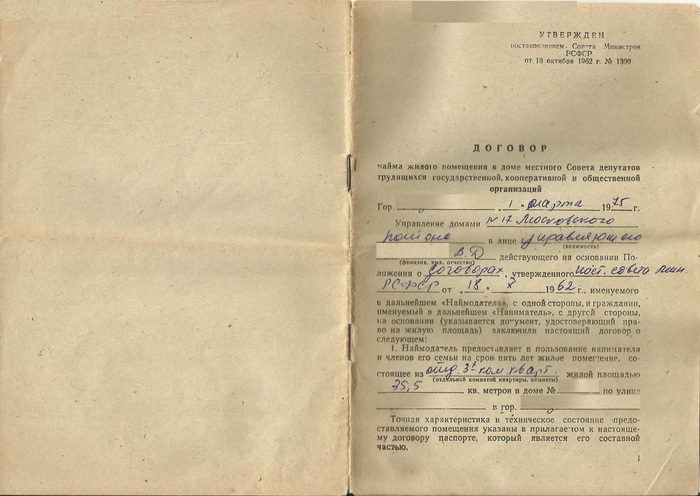 УТВЕРЖДЕН
постановлением Совета Министров
РСФСР
от 18 октября 1962 г. № 1390
ДОГОВОР
найма жилого помещения в доме местного Совета депутатов
трудящихся государственной, кооперативной и общественной
организаций
Гор. 1 марта 1975 г.
Управление домами № 17 Московского
района в лице управляющего
(должность)
В.Д. действующего на основании По-
(фамилия, имя, отчество)
ложения о договорах, утвержденного пост. совета мин.
РСФСР от 18. X 1962 г., именуемого
в дальнейшем «Наймодатель», с одной стороны, и гражданин,
именуемый в дальнейшем «Наниматель», с другой стороны,
на основании (указывается документ, удостоверяющий пра-
во на жилую площадь) заключили настоящий договор о
следующем:
1. Наймодатель предоставляет в пользование нанимателя
и членов его семьи на срок пять лет жилое помещение, со-
стоящее из отд. 3х ком. кварт. жилой площадью
(отдельной комнатой квартиры, комнаты)
35,5 кв. метров в доме № по улице
в гор.
Точная характеристика и техническое состояние предо-
ставляемого помещения указаны в прилагаемом к настояще-
му договору паспорте, который является его составной
частью.
1